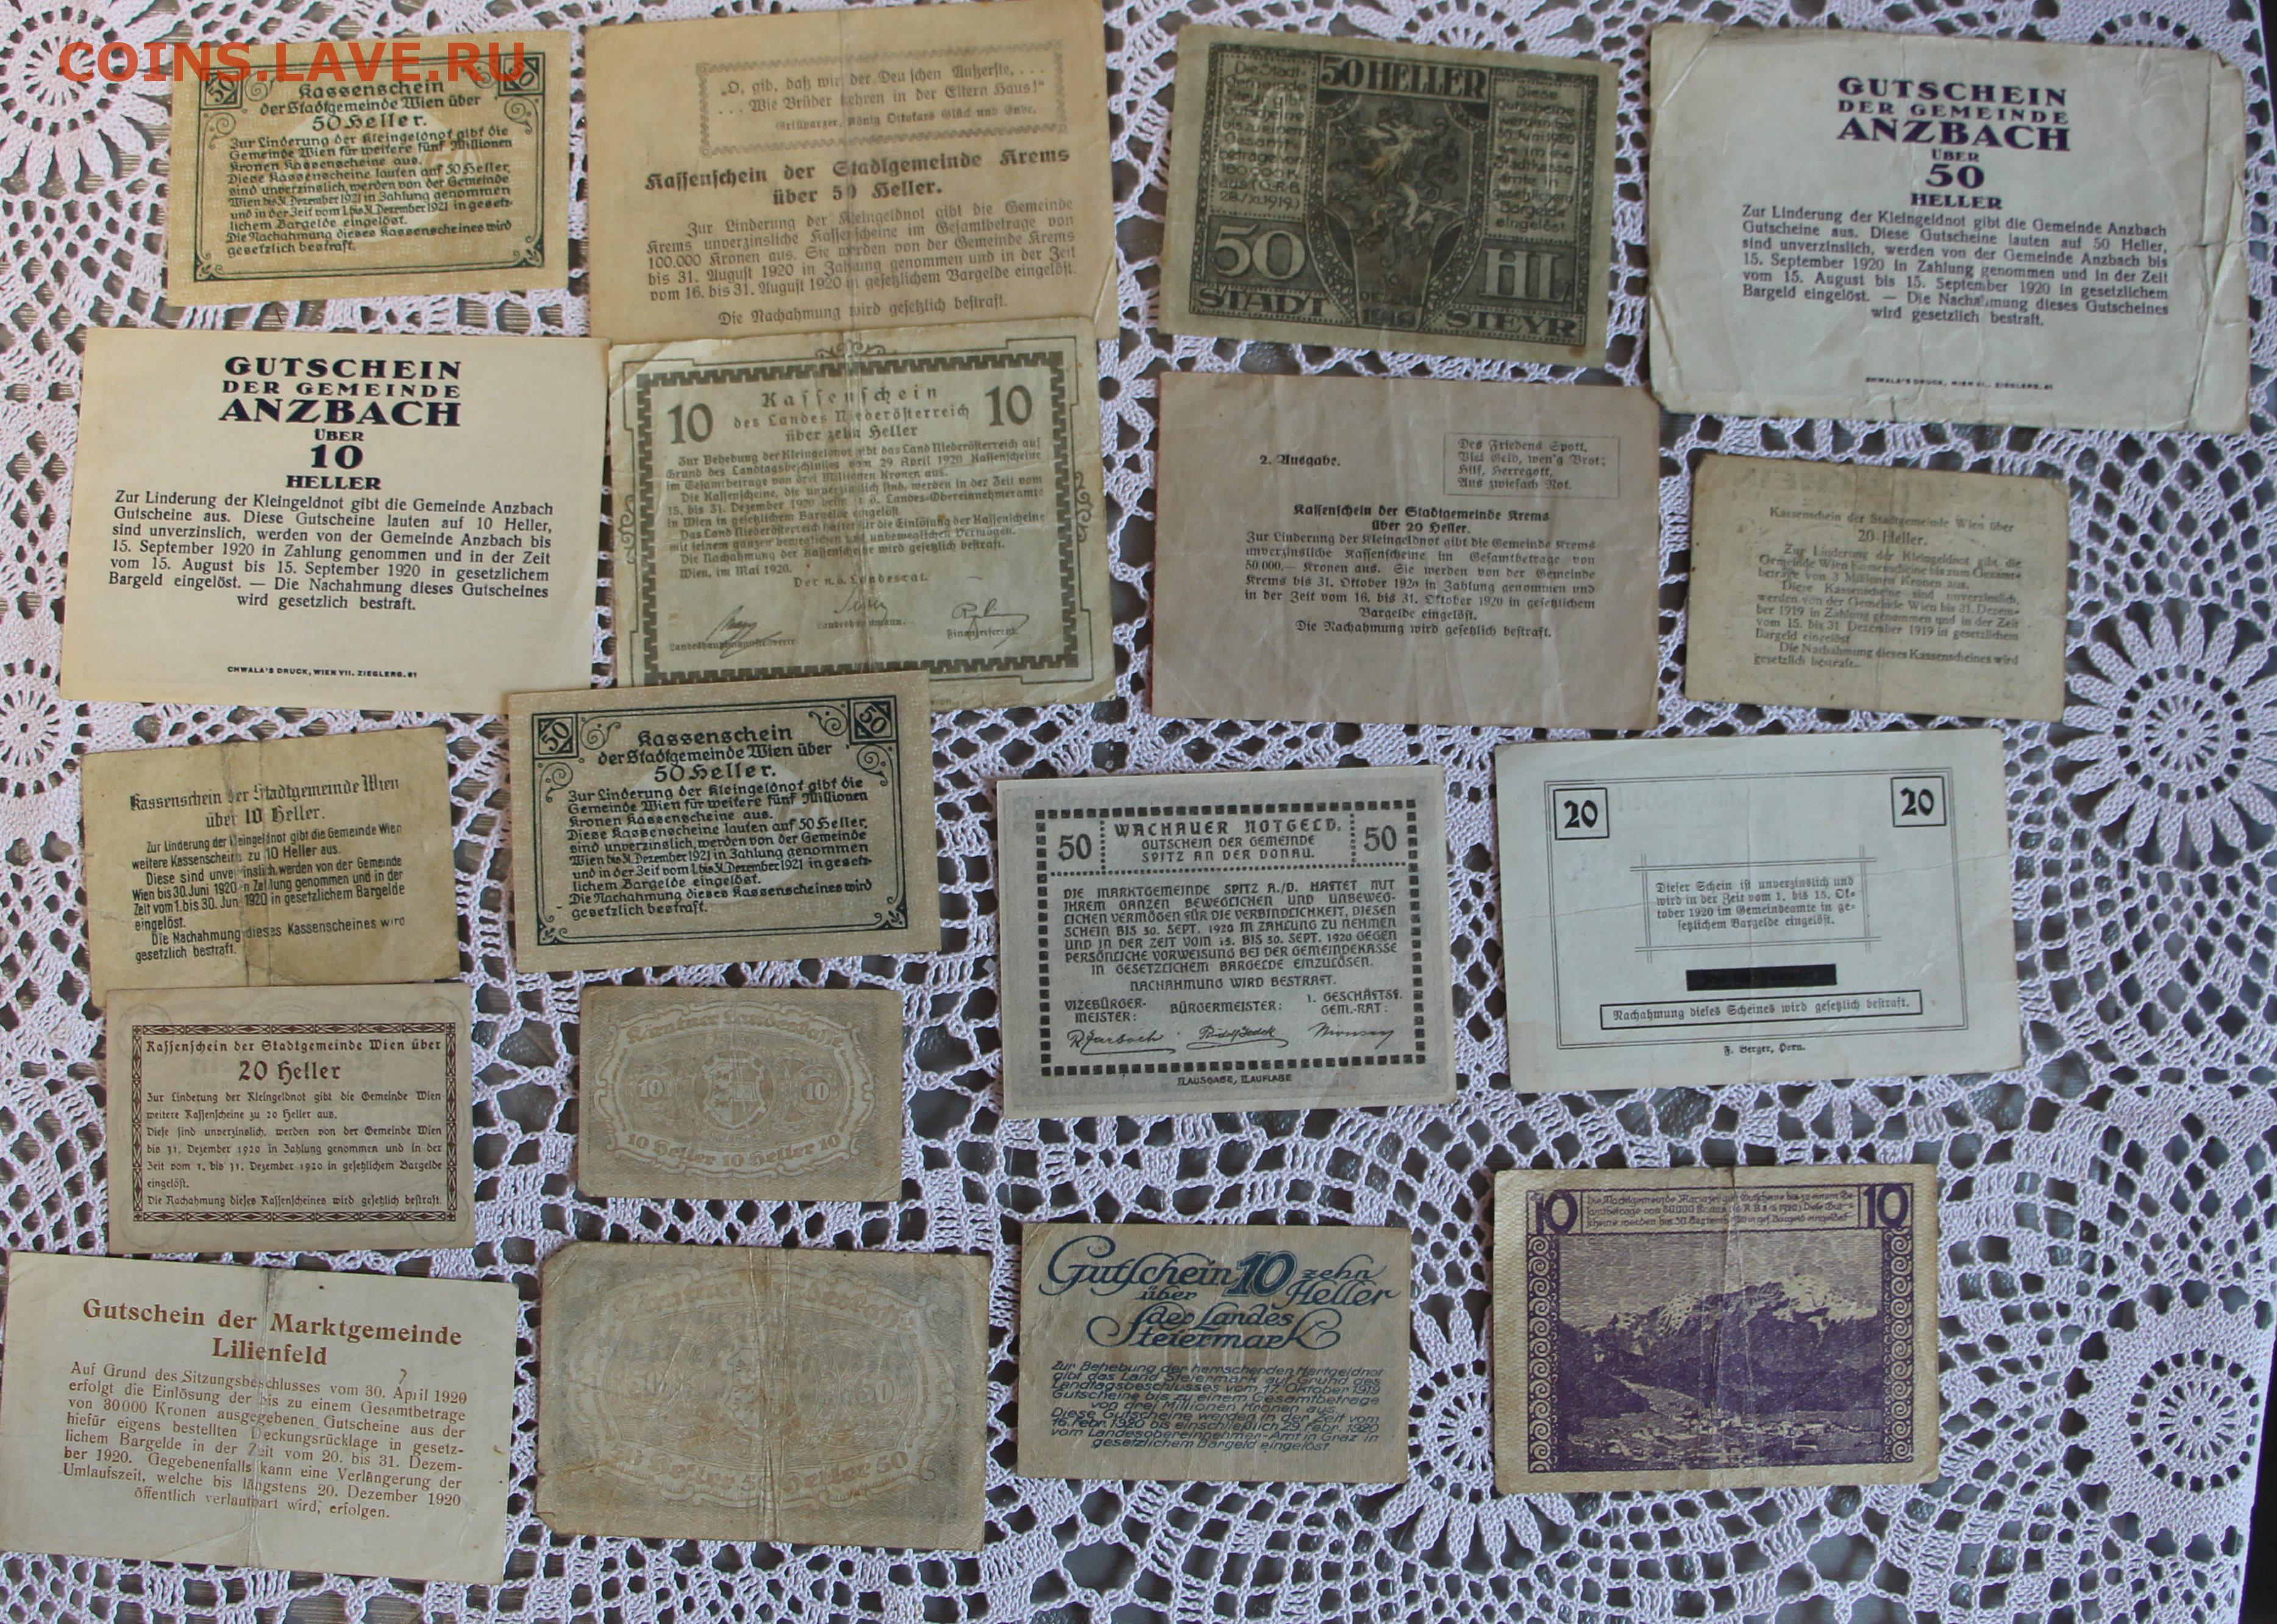 COINS.LAVE.RU
50
50
Kassenschein
der Stadtgemeinde Wien über
50 Heller.
Zur Linderung der Kleingeldnot gibt die
Gemeinde Wien für weitere fünf Millionen
Kronen Kassenscheine aus.
Diese Kassenscheine lauten auf 50 Heller,
sind unverzinslich, werden von der Gemeinde
Wien bis 31. Dezember 1921 in Zahlung genommen
und in der Zeit vom 1. bis 31. Dezember 1921 in gesetz-
lichem Bargelde eingelöst.
Die Nachahmung dieses Kassenscheines wird
gesetzlich bestraft.
„O, gib, daß wir der Deutschen Äußerste, ...
... Wie Brüder kehren in der Eltern Haus!“
Grillparzer, König Ottokars Glück und Ende.
Kassenschein der Stadtgemeinde Krems
über 50 Heller.
Zur Linderung der Kleingeldnot gibt die Gemeinde
Krems unverzinsliche Kassenscheine im Gesamtbetrage von
100.000 Kronen aus. Sie werden von der Gemeinde Krems
bis 31. August 1920 in Zahlung genommen und in der Zeit
vom 16. bis 31. August 1920 in gesetzlichem Bargelde eingelöst.
Die Nachahmung wird gesetzlich bestraft.
50 HELLER
Die Stadt-
gemeinde
Steyr gibt
Gutscheine
bis zu einem
Gesamt-
betrage von
100.000 K.
aus (G.R.B.
28./XI.1919.)
Diese
Gutscheine
werden
30. Juni 1920
Stadtkassa-
amte in
gesetzlichem
Bargelde
eingelöst
50
HL
STADT
10.
DEZMB.
1919
STEYR
GUTSCHEIN
DER GEMEINDE
ANZBACH
ÜBER
50
HELLER
Zur Linderung der Kleingeldnot gibt die Gemeinde Anzbach
Gutscheine aus. Diese Gutscheine lauten auf 50 Heller,
sind unverzinslich, werden von der Gemeinde Anzbach bis
15. September 1920 in Zahlung genommen und in der Zeit
vom 15. August bis 15. September 1920 in gesetzlichem
Bargeld eingelöst. — Die Nachahmung dieses Gutscheines
wird gesetzlich bestraft.
CHWALA'S DRUCK, WIEN VII., ZIEGLERG. 61
GUTSCHEIN
DER GEMEINDE
ANZBACH
ÜBER
10
HELLER
Zur Linderung der Kleingeldnot gibt die Gemeinde Anzbach
Gutscheine aus. Diese Gutscheine lauten auf 10 Heller,
sind unverzinslich, werden von der Gemeinde Anzbach bis
15. September 1920 in Zahlung genommen und in der Zeit
vom 15. August bis 15. September 1920 in gesetzlichem
Bargeld eingelöst. — Die Nachahmung dieses Gutscheines
wird gesetzlich bestraft.
CHWALA'S DRUCK, WIEN VII. ZIEGLERG. 61
10
10
Kassenschein
des Landes Niederösterreich
über zehn Heller
Zur Behebung der Kleingeldnot gibt das Land Niederösterreich auf
Grund des Landtagsbeschlusses vom 29 April 1920 Kassenscheine
im Gesamtbetrage von drei Millionen Kronen aus.
Die Kassenscheine, die unverzinslich sind, werden in der Zeit vom
15. bis 31. Dezember 1920 beim n. ö. Landes-Obereinnehmeramte
in Wien in gesetzlichem Bargelde eingelöst.
Das Land Niederösterreich haftet für die Einlösung der Kassenscheine
mit seinem ganzen beweglichen und unbeweglichen Vermögen.
Die Nachahmung der Kassenscheine wird gesetzlich bestraft.
Wien, im Mai 1920.
Der n.ö. Landesrat.
Landeshauptmannstellverter.
Landeshauptmann.
Finanzreferent.
2. Ausgabe.
Des Friedens Spott,
Viel Geld, wen'g Brot;
Hilf, Herregott,
Aus zwiefach Not.
Kassenschein der Stadtgemeinde Krems
über 20 Heller.
Zur Linderung der Kleingeldnot gibt die Gemeinde Krems
unverzinsliche Kassenscheine im Gesamtbetrage von
50.000.— Kronen aus. Sie werden von der Gemeinde
Krems bis 31. Oktober 1920 in Zahlung genommen und
in der Zeit vom 16. bis 31. Oktober 1920 in gesetzlichem
Bargelde eingelöst.
Die Nachahmung wird gesetzlich bestraft.
Kassenschein der Stadtgemeinde Wien über
20 Heller.
Zur Linderung der Kleingeldnot gibt die
Gemeinde Wien Kassenscheine bis zum Gesamt-
betrage von 3 Millionen Kronen aus.
Diese Kassenscheine sind unverzinslich,
werden von der Gemeinde Wien bis 31. Dezem-
ber 1919 in Zahlung genommen und in der Zeit
vom 15. bis 31 Dezember 1919 in gesetzlichem
Bargeld eingelöst
Die Nachahmung dieses Kassenscheines wird
gesetzlich bestraft.
Kassenschein der Stadtgemeinde Wien
über 10 Heller.
Zur Linderung der Kleingeldnot gibt die Gemeinde Wien
weitere Kassenscheine zu 10 Heller aus.
Diese sind unverzinslich, werden von der Gemeinde
Wien bis 30. Juni 1920 in Zahlung genommen und in der
Zeit vom 1. bis 30. Juni 1920 in gesetzlichem Bargelde
eingelöst.
Die Nachahmung dieses Kassenscheines wird
gesetzlich bestraft.
50
50
Kassenschein
der Stadtgemeinde Wien über
50 Heller.
Zur Linderung der Kleingeldnot gibt die
Gemeinde Wien für weitere fünf Millionen
Kronen Kassenscheine aus.
Diese Kassenscheine lauten auf 50 Heller,
sind unverzinslich, werden von der Gemeinde
Wien bis 31. Dezember 1921 in Zahlung genommen
und in der Zeit vom 1. bis 31. Dezember 1921 in gesetz-
lichem Bargelde eingelöst.
Die Nachahmung dieses Kassenscheines wird
gesetzlich bestraft.
50
WACHAUER NOTGELD.
GUTSCHEIN DER GEMEINDE
SPITZ AN DER DONAU.
50
DIE MARKTGEMEINDE SPITZ A./D. HAFTET MIT
IHREM GANZEN BEWEGLICHEN UND UNBEWEG-
LICHEN VERMÖGEN FÜR DIE VERBINDLICHKEIT, DIESEN
SCHEIN BIS 30. SEPT. 1920 IN ZAHLUNG ZU NEHMEN
UND IN DER ZEIT VOM 15. BIS 30. SEPT. 1920 GEGEN
PERSÖNLICHE VORWEISUNG BEI DER GEMEINDEKASSE
IN GESETZLICHEM BARGELDE EINZULÖSEN.
NACHAHMUNG WIRD BESTRAFT.
VIZEBÜRGER-
MEISTER:
BÜRGERMEISTER:
1. GESCHÄFTSF.
GEM.-RAT:
II. AUSGABE, II. AUFLAGE
20
20
Dieser Schein ist unverzinslich und
wird in der Zeit vom 1. bis 15. Ok-
tober 1920 im Gemeindeamte in ge-
setzlichem Bargelde eingelöst.
Nachahmung dieses Scheines wird gesetzlich bestraft.
F. Berger, Horn.
Kassenschein der Stadtgemeinde Wien über
20 Heller
Zur Linderung der Kleingeldnot gibt die Gemeinde Wien
weitere Kassenscheine zu 20 Heller aus.
Diese sind unverzinslich, werden von der Gemeinde Wien
bis 31. Dezember 1920 in Zahlung genommen und in der
Zeit vom 1. bis 31. Dezember 1920 in gesetzlichem Bargelde
eingelöst.
Die Nachahmung dieses Kassenscheines wird gesetzlich bestraft.
Kärntner Landeskasse
10
10
10 Heller 10 Heller 10
Gutschein der Marktgemeinde
Lilienfeld
Auf Grund des Sitzungsbeschlusses vom 30. April 1920
erfolgt die Einlösung der bis zu einem Gesamtbetrage
von 30000 Kronen ausgegebenen Gutscheine aus der
hiefür eigens bestellten Deckungsrücklage in gesetz-
lichem Bargelde in der Zeit vom 20. bis 31. Dezem-
ber 1920. Gegebenenfalls kann eine Verlängerung der
Umlaufszeit, welche bis längstens 20. Dezember 1920
öffentlich verlautbart wird, erfolgen.
50
Heller 50 Heller 50
Gutschein 10 zehn
über Heller
des Landes
Steiermark
Zur Behebung der herrschenden Hartgeldnot
gibt das Land Steiermark auf Grund des
Landtagsbeschlusses vom 17. Oktober 1919
Gutscheine bis zu einem Gesamtbetrage
von drei Millionen Kronen aus.
Diese Gutscheine werden in der Zeit vom
16. Febr. 1920 bis einschließlich 29. Febr. 1920
vom Landesobereinnehmer-Amt in Graz in
gesetzlichem Bargeld eingelöst
10
Die Marktgemeinde Mariazell gibt Gutscheine bis zu einem Ge-
samtbetrage von 80000 Kronen
10